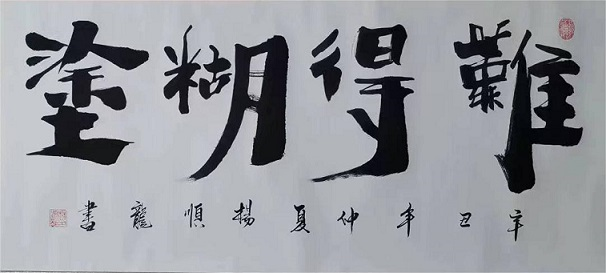 難得糊塗
辛丑年仲夏揚順龍書